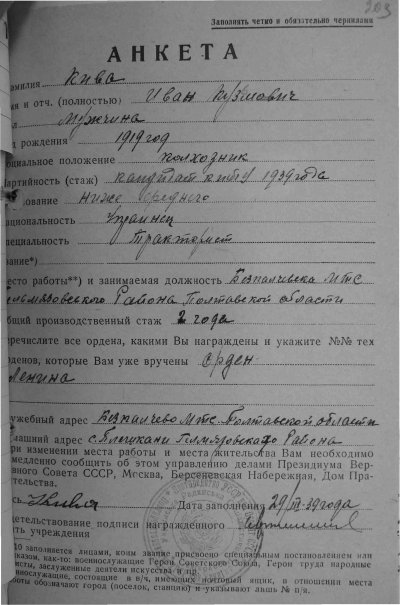 203
Заполнять четко и обязательно чернилами
АНКЕТА
амилия Кива
мя и отч. (полностью) Иван Кузмович
л Мужчина
од рождения 1919 год
оциальное положение колхозник
артийность (стаж) кандидат КП(б)У 1939 года
ование ниже среднего
ациональность Украинец
пециальность Тракторист
вание*)
есто работы**) и занимаемая должность Безпалчивска МТС
ельмязовского Района Полтавской области
бщий производственный стаж 2 года
еречислите все ордена, какими Вы награждены и укажите №№ тех
рденов, которые Вам уже вручены Орден
Ленина
лужебный адрес Безпалчево МТС Полтавской области
машний адрес с. Плешкани Гельмязовского Района
ри изменении места работы и места жительства Вам необходимо
медленно сообщить об этом управлению делами Президиума Вер-
вного Совета СССР, Москва, Берсеневская Набережная, Дом Пра-
тельства.
сь Икива Дата заполнения 29/III-39 года
детельствование подписи награжденного
ть учреждения
) О заполняется лицами, коим звание присвоено специальным постановлением или
казом, как-то: военнослужащие Герои Советского Союза, Герои труда народные
исты, заслуженные деятели искусства и пр.
ннослужащие, состоящие в в/ч, имеющих почтовый ящик, в отношении места
боты обозначают город (поселок, станцию) и указывают лишь № п/я.